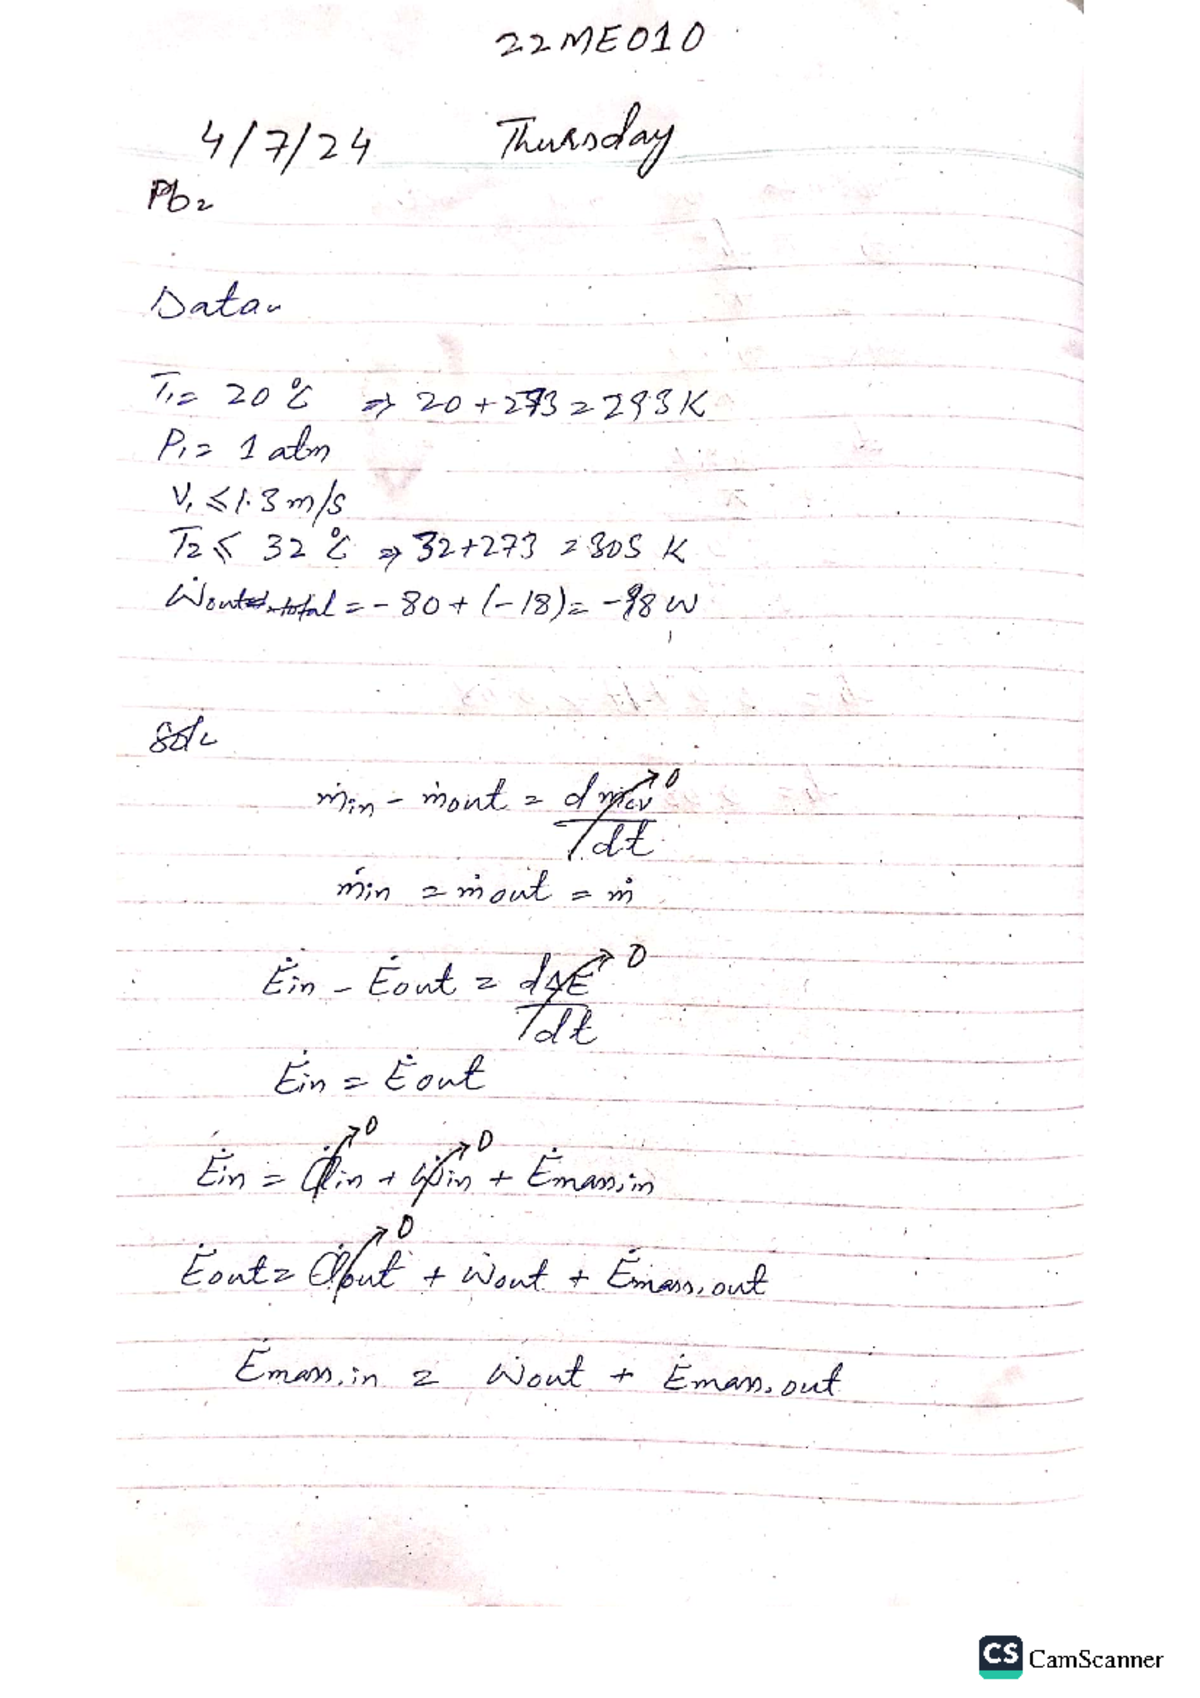 22ME010
4/7/24 Thursday
Pb2
Data
T₁ = 20 °C ⇒ 20 + 273 = 293 K
P₁ = 1 atm
V₁ ≤ 1.3 m/s
T₂ ≤ 32 °C ⇒ 32+273 = 305 K
Ẇout total = - 80 + (-18) = -98 W
Sol
ṁin - ṁout = dmcv/dt → 0
ṁin = ṁout = ṁ
Ėin - Ėout = dΔE/dt → 0
Ėin = Ėout
Ėin = Q̇in → 0 + Ẇin → 0 + Ėmass,in
Ėout = Q̇out → 0 + Ẇout + Ėmass,out
Ėmass,in = Ẇout + Ėmass,out
CS CamScanner